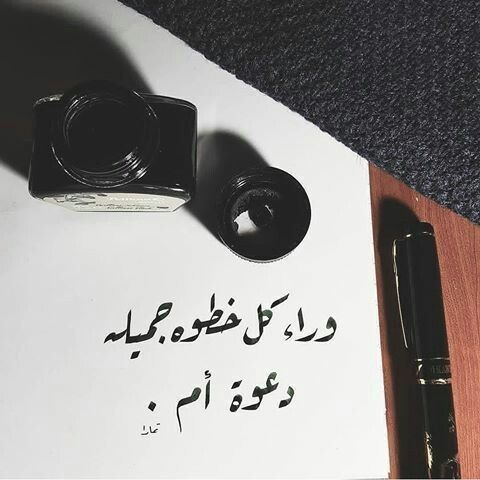 وراء كل خطوه جميله
دعوة أم .
تمارا